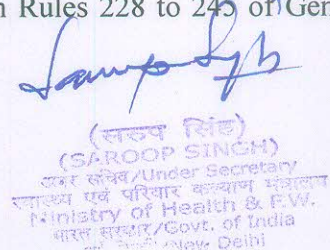 Rules 228 to 245 of Gen
(सरुप सिंह)
(SAROOP SINGH)
अवर सचिव/Under Secretary
स्वास्थ्य एवं परिवार कल्याण मंत्रालय
Ministry of Health & F.W.
भारत सरकार/Govt. of India
New Delhi